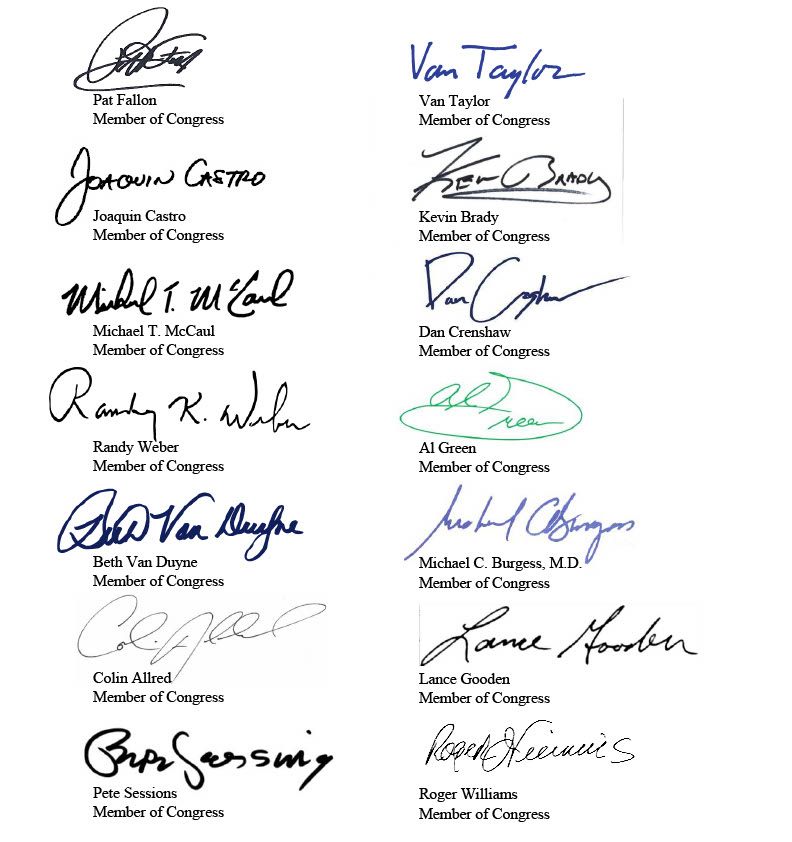 Pat Fallon
Member of Congress
Van Taylor
Van Taylor
Member of Congress
Joaquin Castro
Joaquin Castro
Member of Congress
Ken Brady
Kevin Brady
Member of Congress
Michael T. McCaul
Michael T. McCaul
Member of Congress
Dan Crenshaw
Dan Crenshaw
Member of Congress
Randy K. Weber
Randy Weber
Member of Congress
Al Green
Al Green
Member of Congress
Beth Van Duyne
Beth Van Duyne
Member of Congress
Michael C. Burgess, M.D.
Member of Congress
Colin Allred
Colin Allred
Member of Congress
Lance Gooden
Lance Gooden
Member of Congress
Pete Sessions
Pete Sessions
Member of Congress
Roger Williams
Roger Williams
Member of Congress